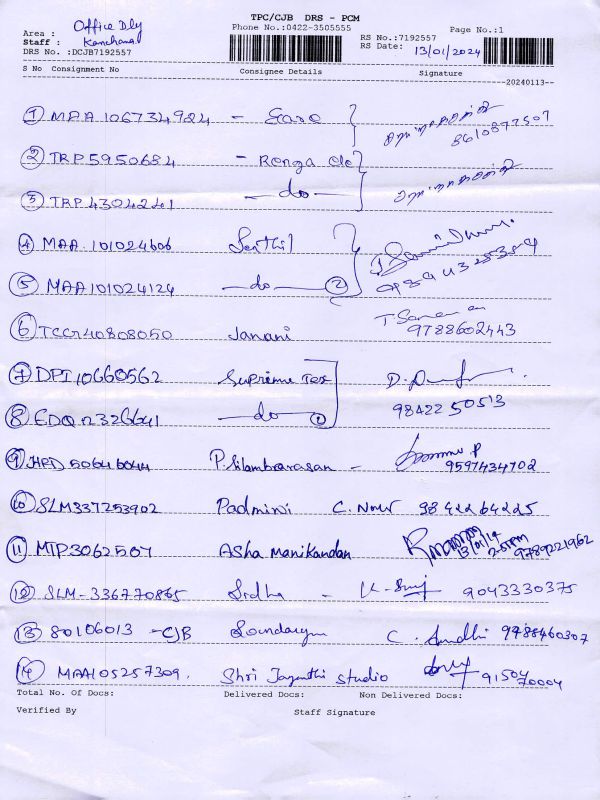 TPC/CJB DRS - PCM
Phone No.:0422-3505555
Page No.:1
Area : Office Dly
Staff : Kanchana
DRS No. :DCJB7192557
RS No.:7192557
RS Date: 13/01/2024
S No Consignment No Consignee Details Signature
20240113
1 MAA106734924 -
8610877507
2 TRP5950684 - Renga ele
3 TRP43042241 - do -
4 MAA.101024606 Senthil
9894325384
5 MAA101024124 - do - 2
6 TCG40808050 Janani 9788602443
7 DPI10660562 Supreme Tex
8 EDQ12326641 - do - 1 98422 50513
9 HPD50646044 P. Silambarasan - 9597434702
10 SLM337253902 Padmini 9842264225
11 MTP3062507 Asha Manikandan 13/01/24 9789221962
12 SLM-336770865 Sridha - 9043330375
13 80106013 -CJB Soundarya C. 9788460307
14 MAA105257309. Shri Jayanthi Studio 91504 70004
Total No. Of Docs: Delivered Docs: Non Delivered Docs:
Verified By Staff Signature